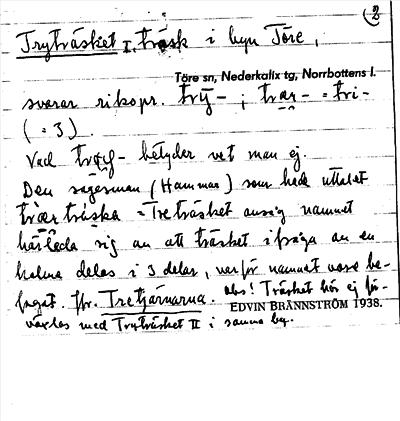 (2
Tryträsket I, träsk i byn Töre,
Töre sn, Nederkalix tg, Norrbottens l.
svarar rikspr. trȳ- ; trær- = tri-
( = 3) .
Vad try- betyder vet man ej.
Den sagesman (Hammar) som hade uttalet
trær träska = Treträsket ansåg namnet
härleda sig av att träsket ifråga av en
holme delas i 3 delar, varför namnet vore be-
fogat. Jfr. Tretjärnarna. obs! Träsket bör ej för-
EDVIN BRÄNNSTRÖM 1938.
växlas med Tryträsket II i samma by.